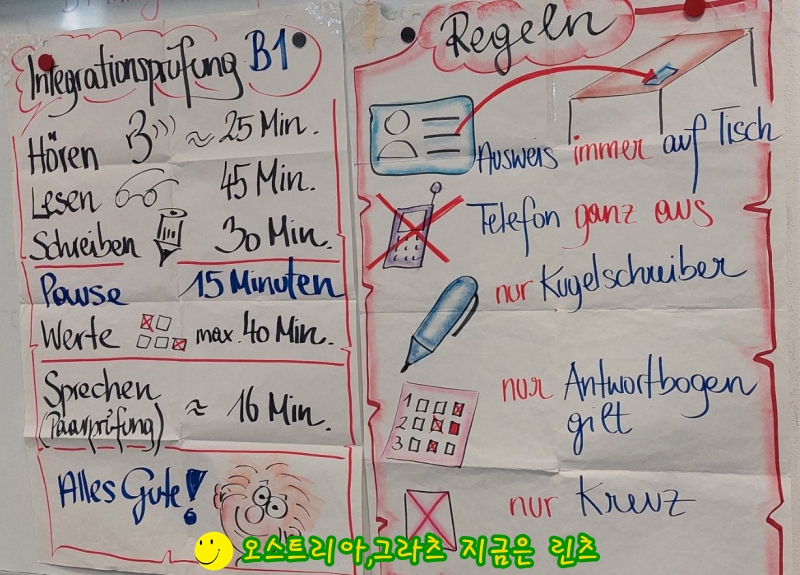 Integrationsprüfung B1
Hören ≈ 25 Min.
Lesen 45 Min.
Schreiben 30 Min.
Pause 15 Minuten
Werte max. 40 Min.
Sprechen
(Paarprüfung) ≈ 16 Min.
Alles Gute!
Regeln
Ausweis immer auf Tisch
Telefon ganz aus
nur Kugelschreiber
1
2
3
nur Antwortbogen
gilt
nur Kreuz
오스트리아,그라츠 지금은 린츠